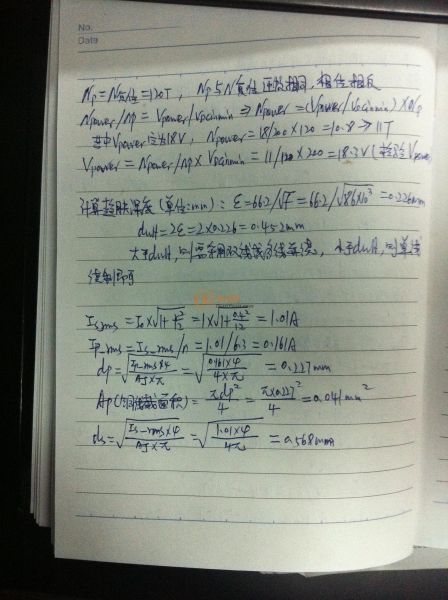 No.
Date
Np=N复位=120T, Np与N复位匝数相同, 相位相反
Npower/np=Vpower/Vdcinmin⇒Npower=(Vpower/Vdcinmin)×Np
其中Vpower定为18V, Npower=18/200×120=10.8→11T
Vpower=Npower/np×Vdcinmin=11/120×200=18.3V(检验Vpower
计算趋肤深度(单位:mm): ε=66.2/√f=66.2/√(86×10³)=0.226mm
dwH=2ε=2×0.226=0.452mm
大于dwH, 则需采用双线或多线并绕, 小于dwH, 则单线
绕制即可
Is_rms=Io×√(1+r²/12)=1×√(1+0.4²/12)=1.01A
Ip_rms=Is_rms/n=1.01/6.3=0.161A
dp=√(Ip_rms×4/AJ×π)=√(0.161×4/4×π)=0.227mm
Ap(铜线截面积)=πdp²/4=π×0.227²/4=0.041mm²
ds=√(Is_rms×4/AJ×π)=√(1.01×4/4π)=0.568mm